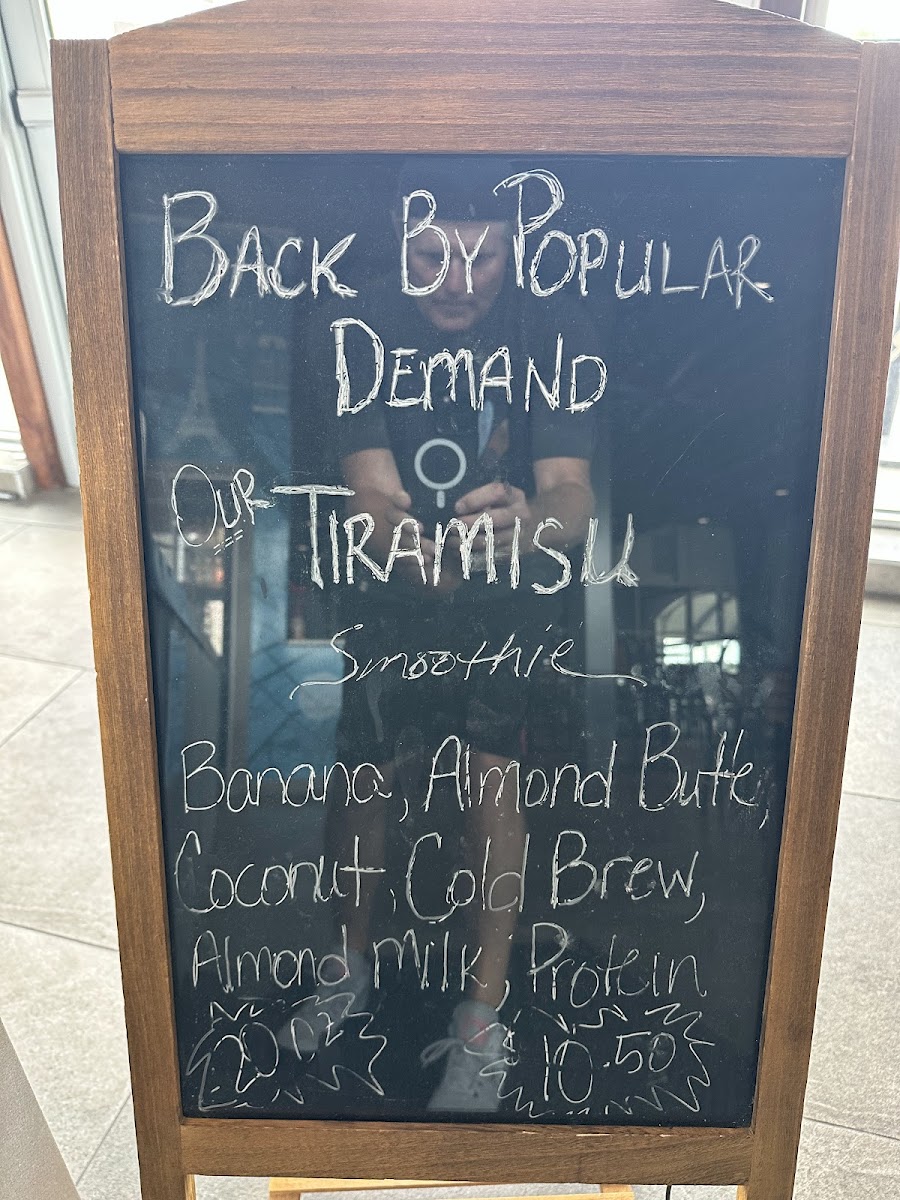 BACK BY POPULAR
DEMAND
OUR TIRAMISU
Smoothie
Banana, Almond Butte,
Coconut, Cold Brew,
Almond Milk, Protein
20 oz $10.50